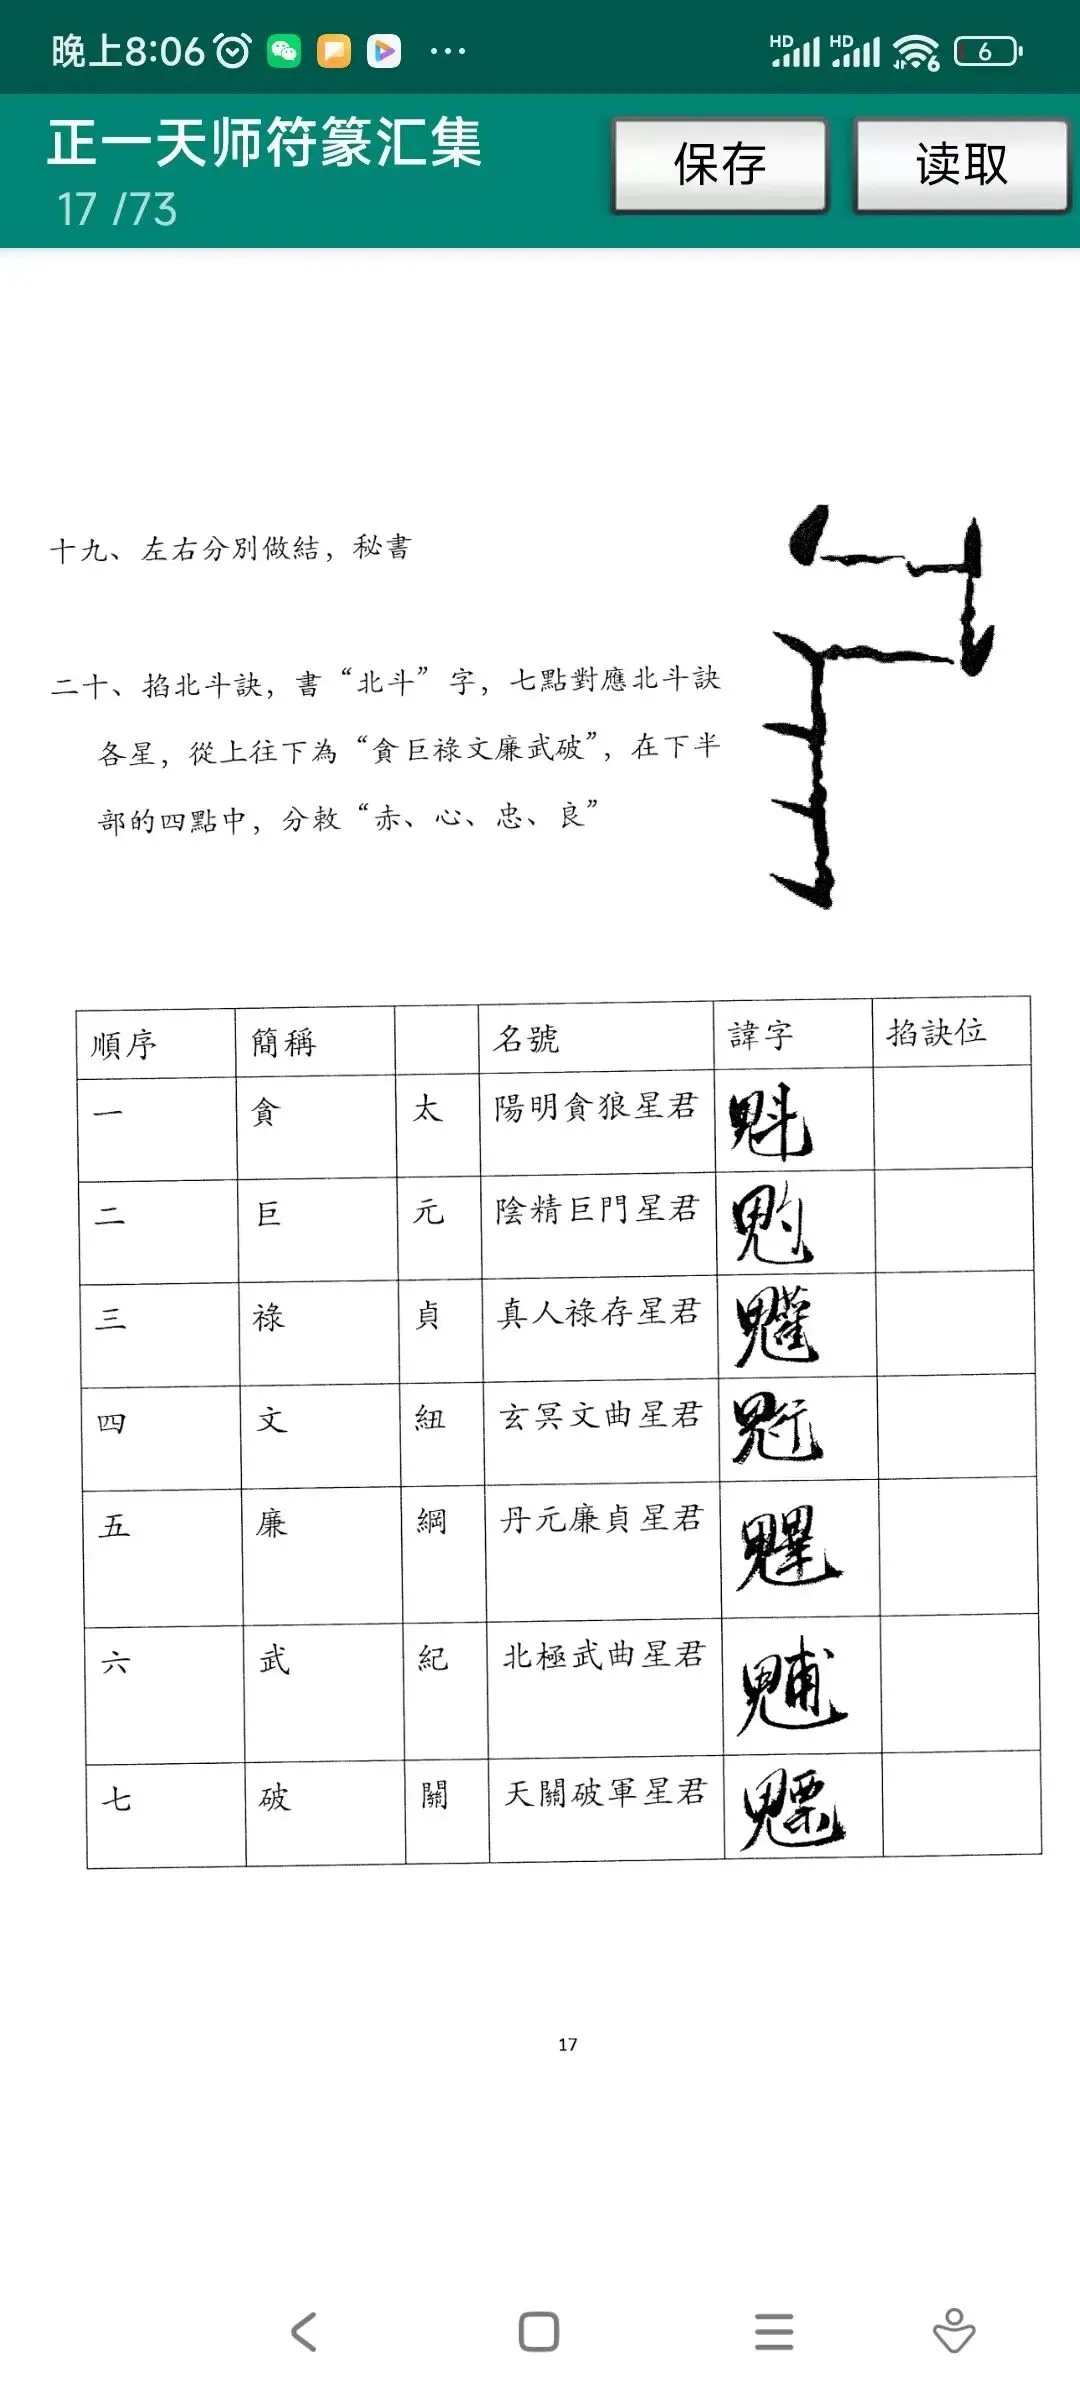 晚上8:06
HD HD 6 6
正一天师符篆汇集
17 /73
保存
读取
十九、左右分別做結，秘書
二十、掐北斗訣，書“北斗”字，七點對應北斗訣
各星，從上往下為“貪巨祿文廉武破”，在下半
部的四點中，分敕“赤、心、忠、良”
順序 簡稱 名號 諱字 掐訣位
一 貪 太 陽明貪狼星君 魁
二 巨 元 陰精巨門星君 魡
三 祿 貞 真人祿存星君
四 文 紐 玄冥文曲星君
五 廉 綱 丹元廉貞星君
六 武 紀 北極武曲星君
七 破 關 天關破軍星君
17